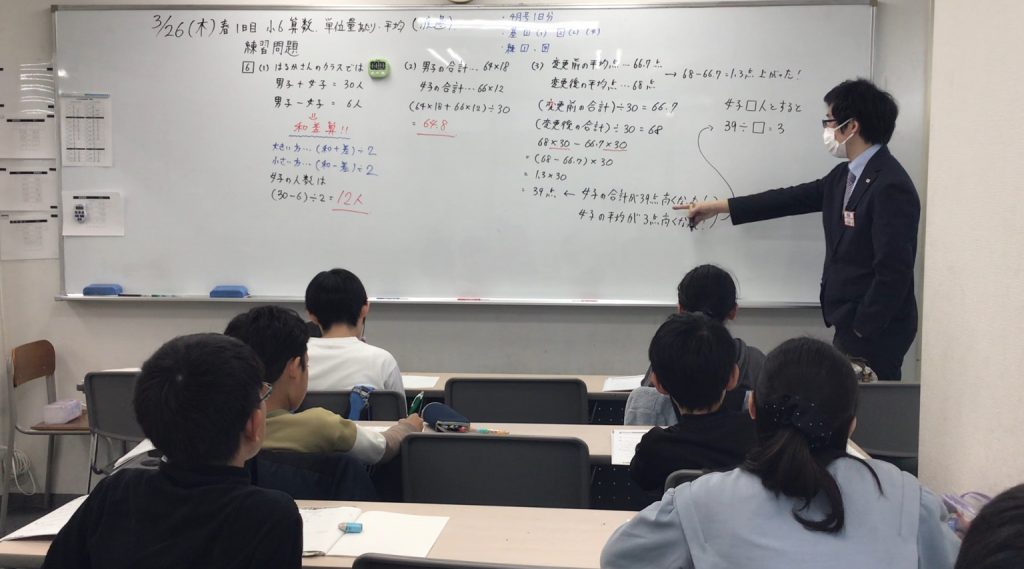 3/26(木) 春1日目 小6算数. 単位量あたり・平均
練習問題
・4月号1日分
6 (1) はるかさんのクラスでは
男子+女子=30人
男子-女子= 6人
⇓
和差算!!
大きい方…(和+差)÷2
小さい方…(和-差)÷2
女子の人数は
(30-6)÷2=12人
(2) 男子の合計…64×18
女子の合計…66×12
(64×18+66×12)÷30
=64.8
(3) 変更前の平均点…66.7点
変更後の平均点…68点
→ 68-66.7=1.3点 上がった!
(変更前の合計)÷30=66.7
(変更後の合計)÷30=68
68×30-66.7×30
=(68-66.7)×30
=1.3×30
=39点 ← 女子の合計が39点高くなった!
女子の平均が3点高くな
女子□人とすると
39÷□=3